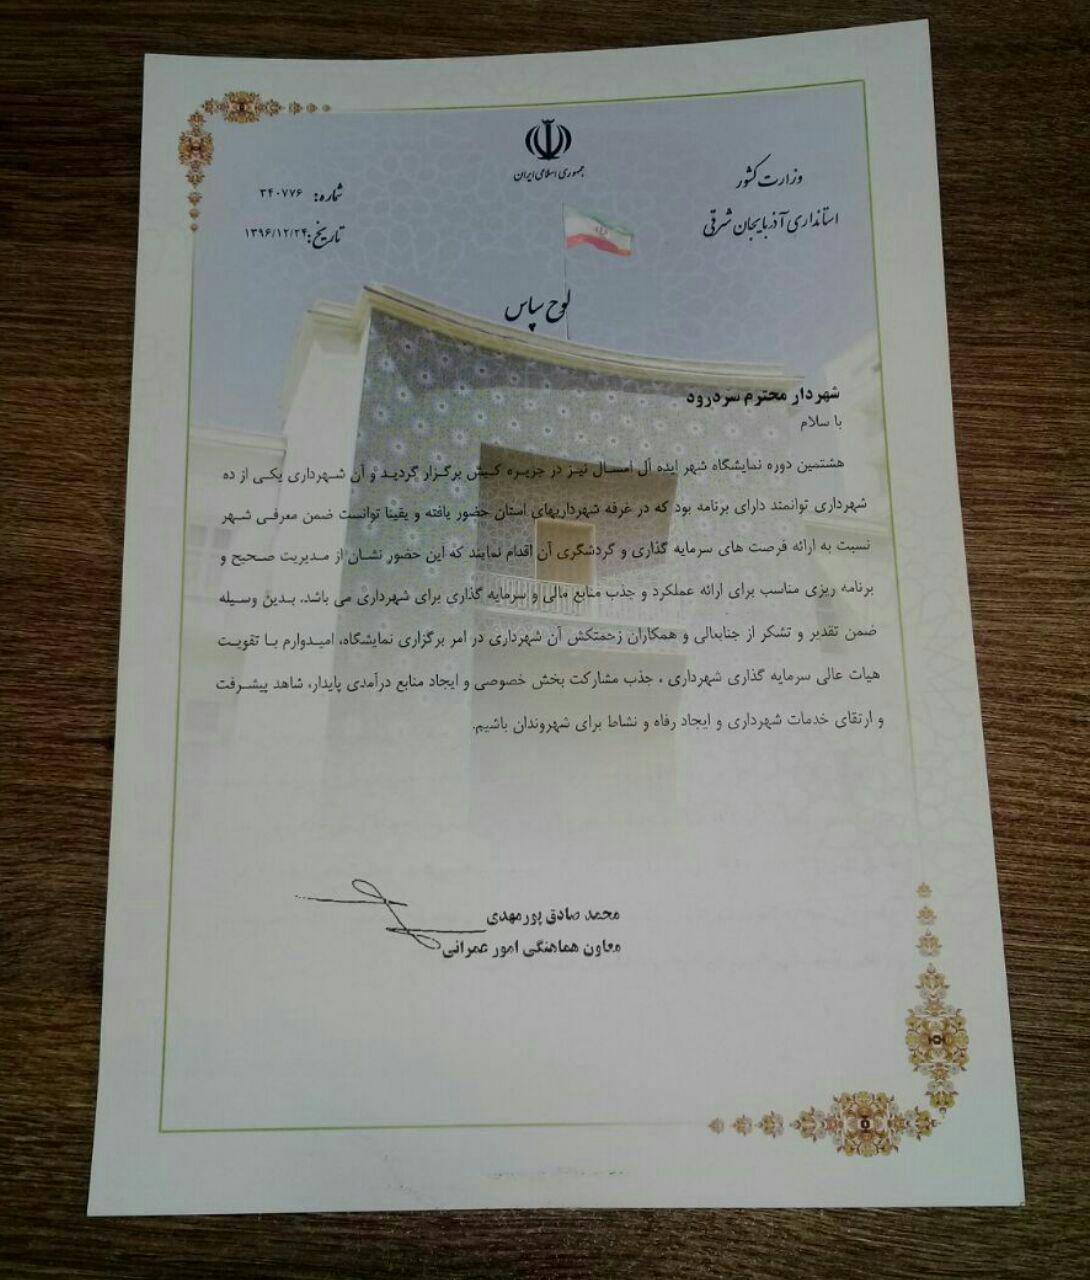 جمهوری اسلامی ایران
وزارت کشور
استانداری آذربایجان شرقی
شماره: ۳۴۰۷۷۶
تاریخ: ۱۳۹۶/۱۲/۲۴
لوح سپاس
شهردار محترم سردرود
با سلام
هشتمین دوره نمایشگاه شهر ایده آل امسال نیز در جزیره کیش برگزار گردید و آن شهرداری یکی از ده
شهرداری توانمند دارای برنامه بود که در غرفه شهرداریهای استان حضور یافته و یقینا توانست ضمن معرفی شهر
نسبت به ارائه فرصت های سرمایه گذاری و گردشگری آن اقدام نمایند که این حضور نشان از مدیریت صحیح و
برنامه ریزی مناسب برای ارائه عملکرد و جذب منابع مالی و سرمایه گذاری برای شهرداری می باشد. بدین وسیله
ضمن تقدیر و تشکر از جنابعالی و همکاران زحمتکش آن شهرداری در امر برگزاری نمایشگاه، امیدوارم با تقویت
هیات عالی سرمایه گذاری شهرداری ، جذب مشارکت بخش خصوصی و ایجاد منابع درآمدی پایدار، شاهد پیشرفت
و ارتقای خدمات شهرداری و ایجاد رفاه و نشاط برای شهروندان باشیم.
محمد صادق پورمهدی
معاون هماهنگی امور عمرانی